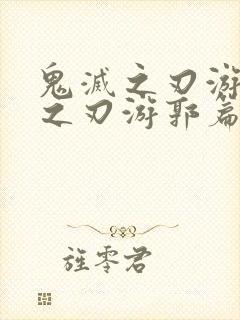 鬼滅之刃游
之刃游郭篇
旌零君